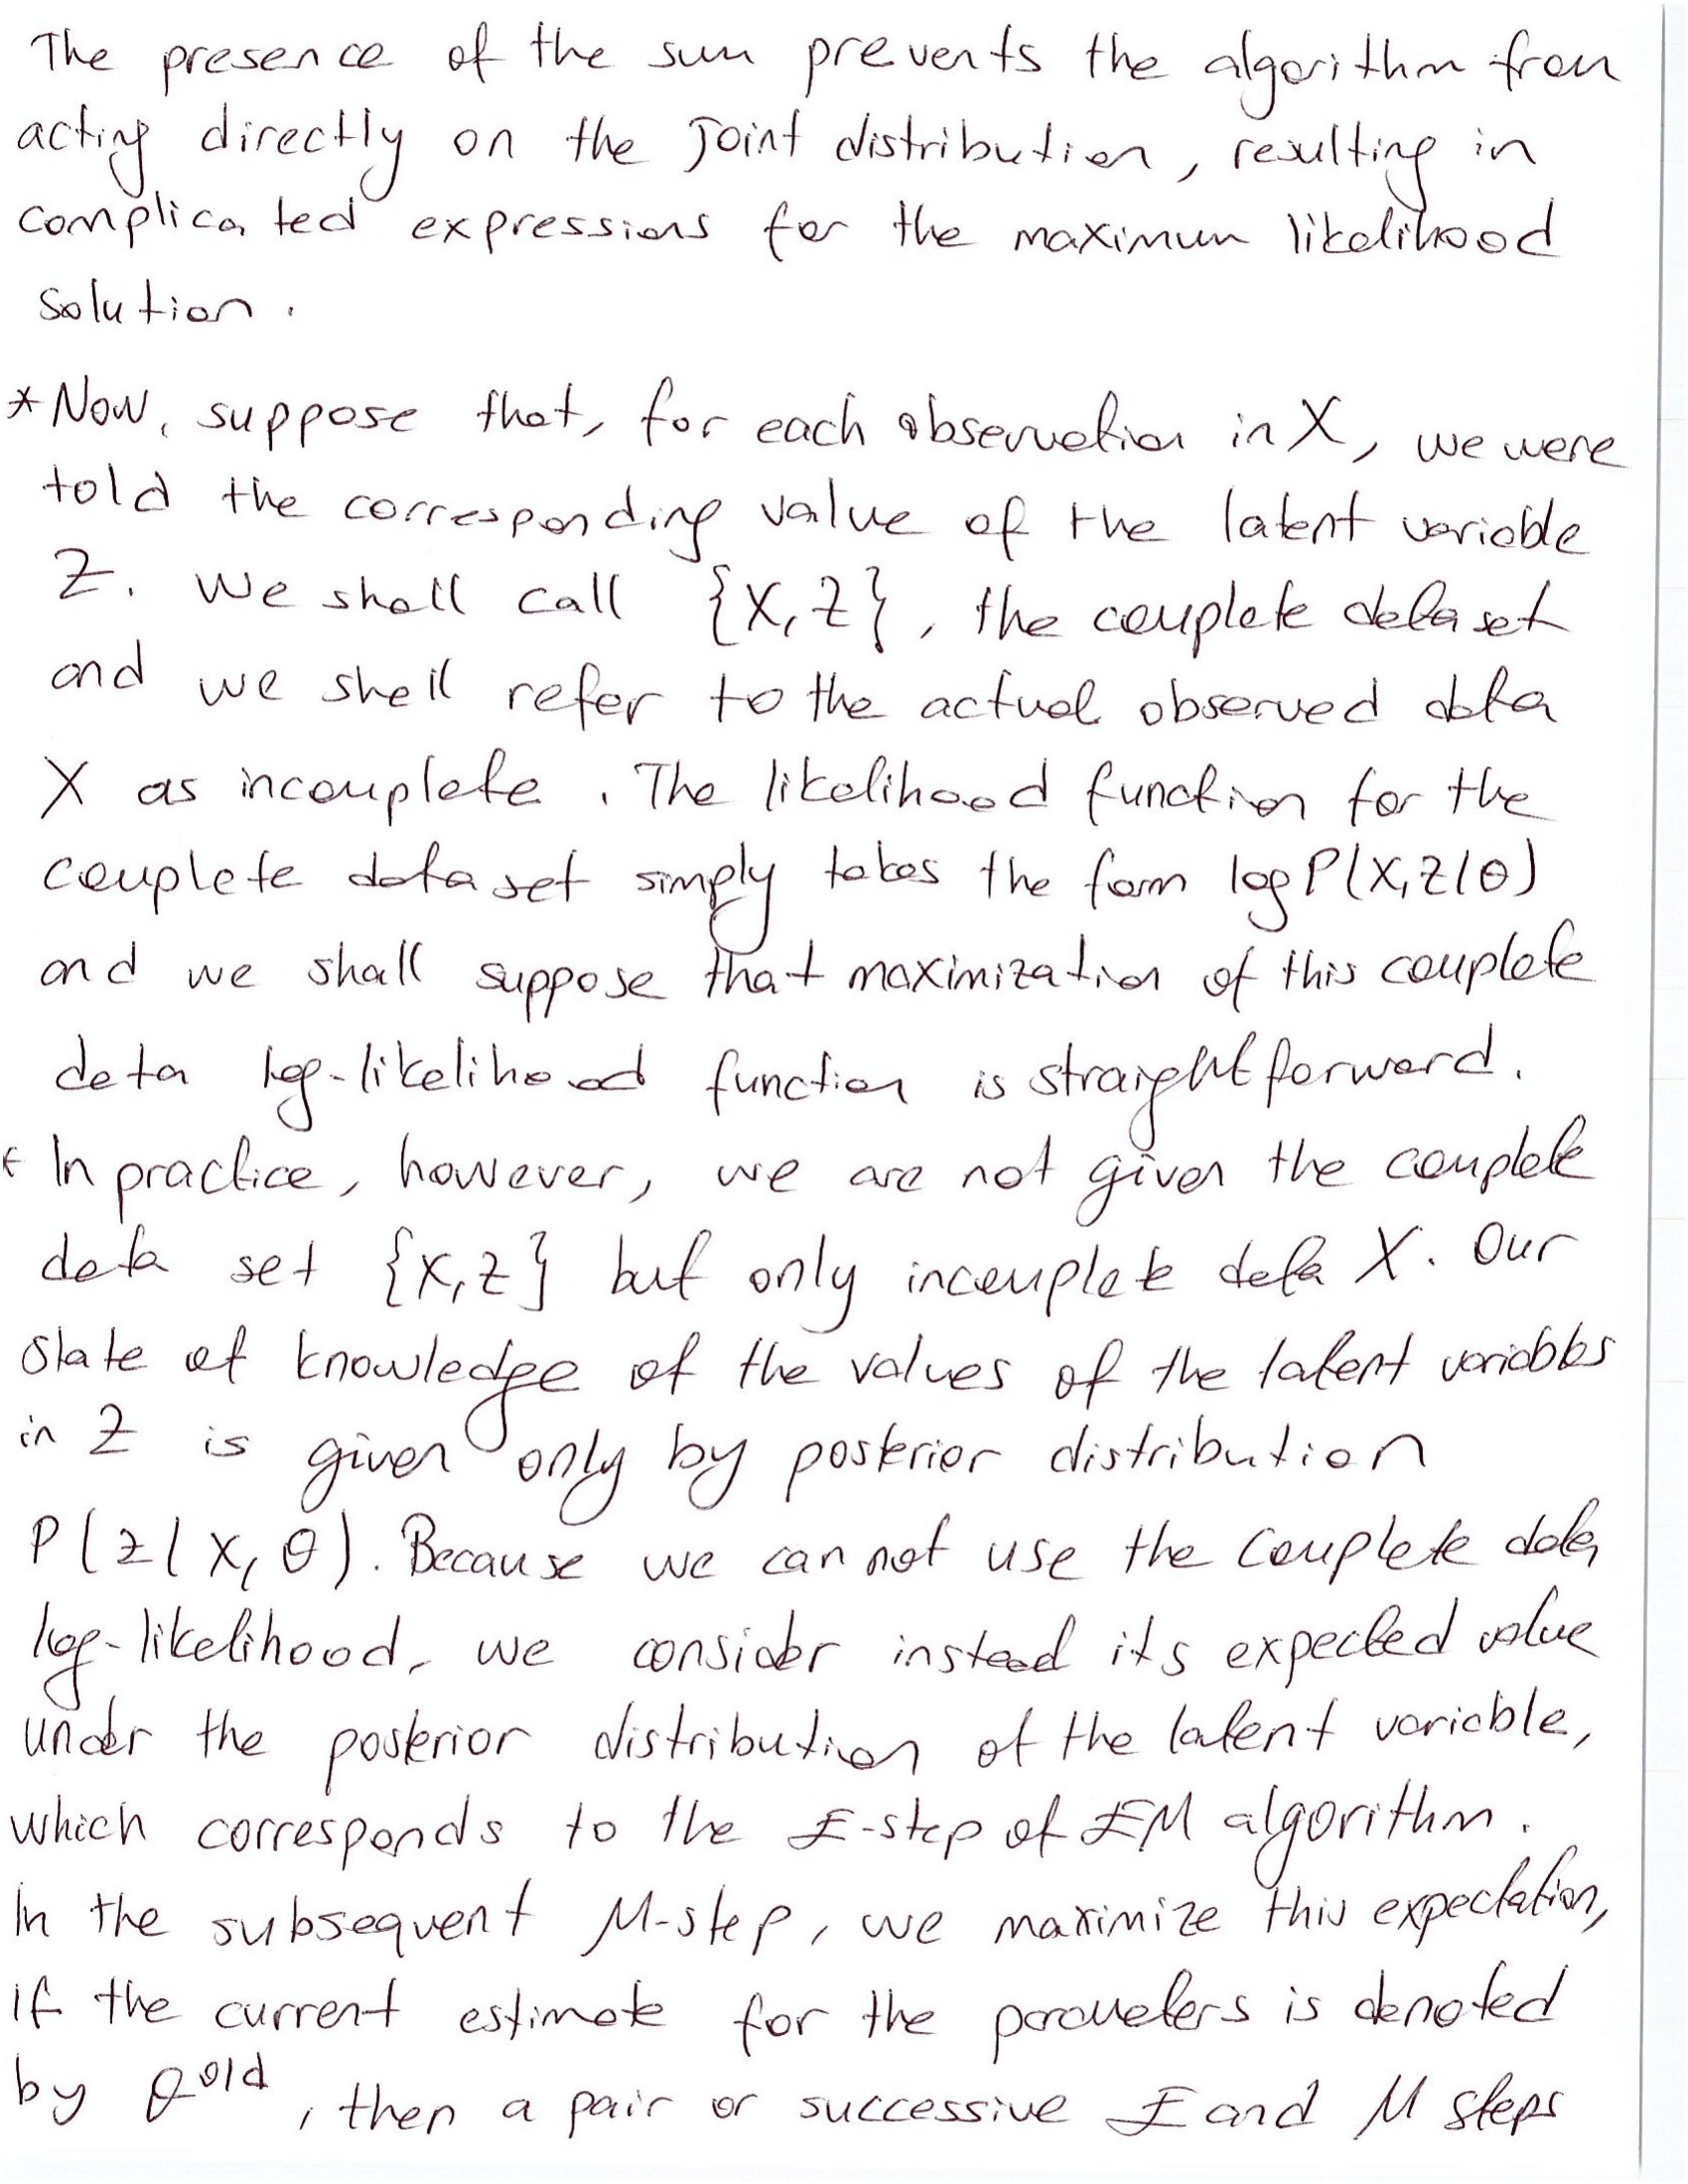 The presence of the sum prevents the algorithm from
acting directly on the joint distribution, resulting in
complicated expressions for the maximum likelihood
solution.
* Now, suppose that, for each observation in X, we were
told the corresponding value of the latent variable
Z. We shall call {X,Z}, the complete dataset
and we shall refer to the actual observed data
X as incomplete. The likelihood function for the
complete dataset simply takes the form log P(X,Z|θ)
and we shall suppose that maximization of this complete
data log-likelihood function is straightforward.
* In practice, however, we are not given the complete
data set {X,Z} but only incomplete data X. Our
state of knowledge of the values of the latent variables
in Z is given only by posterior distribution
P(Z|X,θ). Because we cannot use the complete data
log-likelihood, we consider instead its expected value
under the posterior distribution of the latent variable,
which corresponds to the E-step of EM algorithm.
In the subsequent M-step, we maximize this expectation,
if the current estimate for the parameters is denoted
by θ^old, then a pair or successive E and M steps